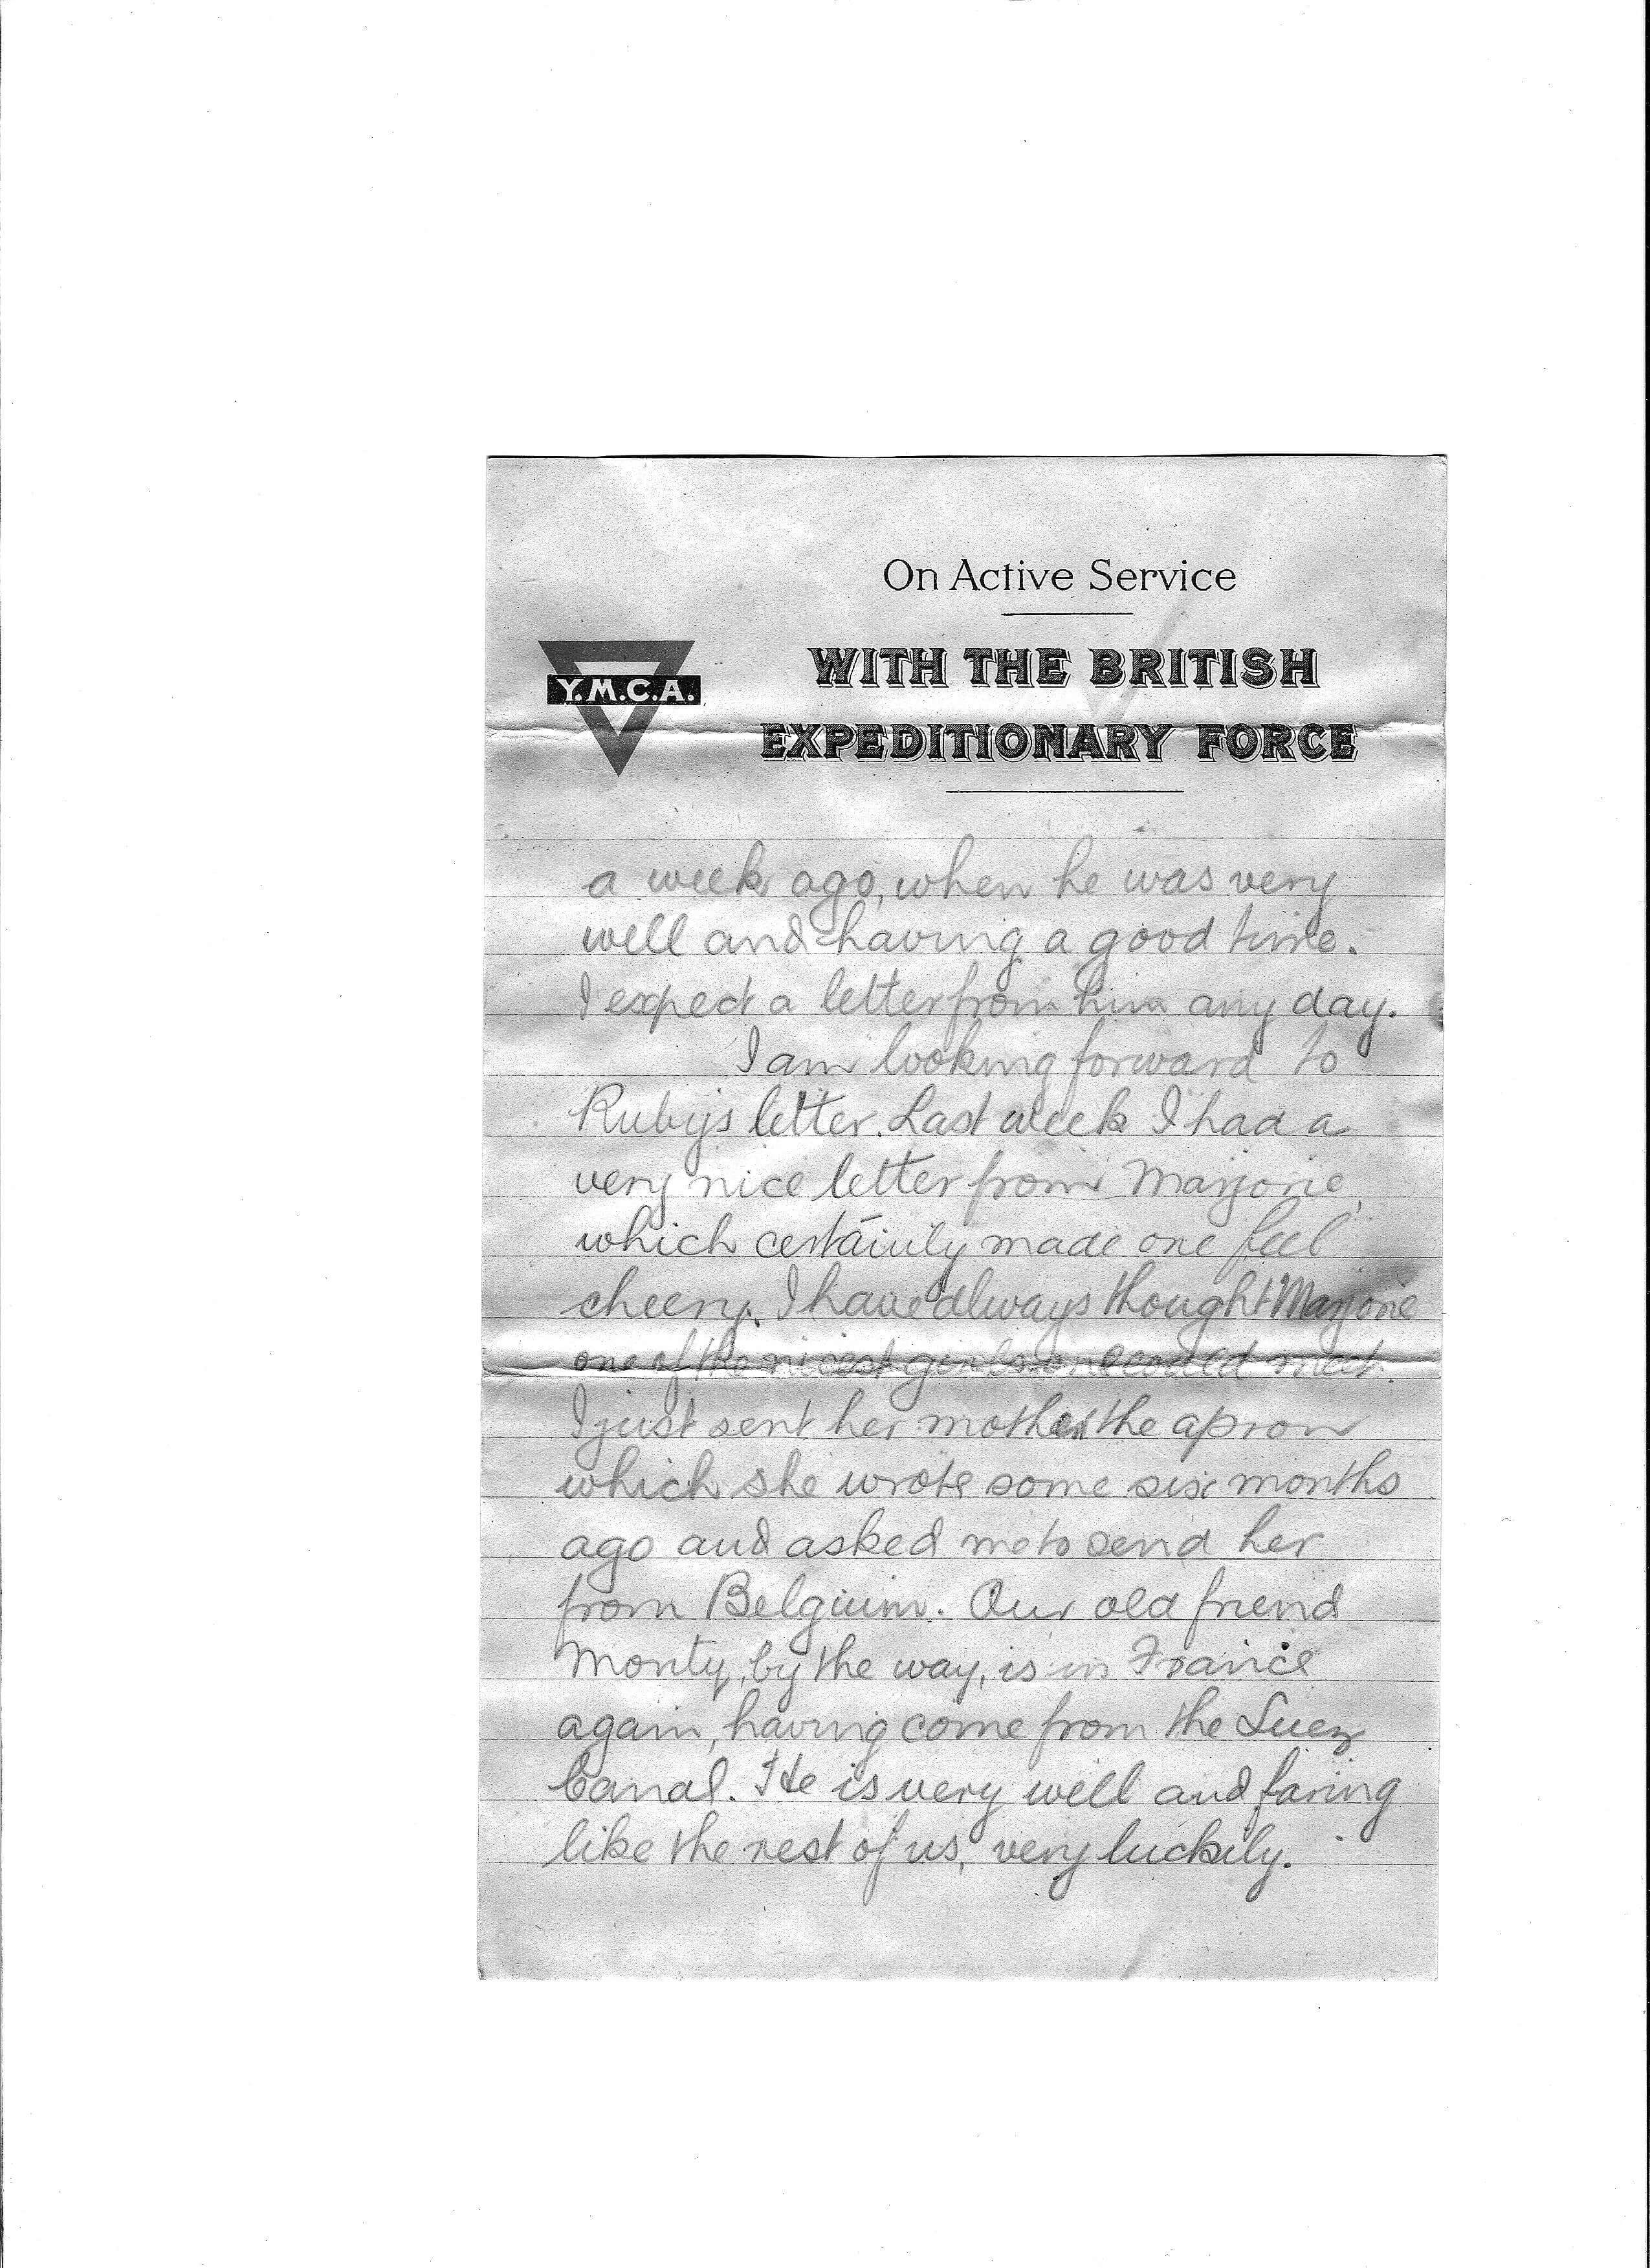 On Active Service
WITH THE BRITISH
Y.M.C.A.
EXPEDITIONARY FORCE
a week ago, when he was very
well and having a good time.
I expect a letter from him any day.
I am looking forward to
Ruby's letter. Last week I had a
very nice letter from Marjorie,
which certainly made one feel
cheery. I have always thought Marjorie
one of the nicest girls one could meet.
I just sent her mother the apron
which she wrote some six months
ago and asked me to send her
from Belgium. Our old friend
Monty, by the way, is in France
again, having come from the Suez
Canal. He is very well and faring
like the rest of us, very luckily.